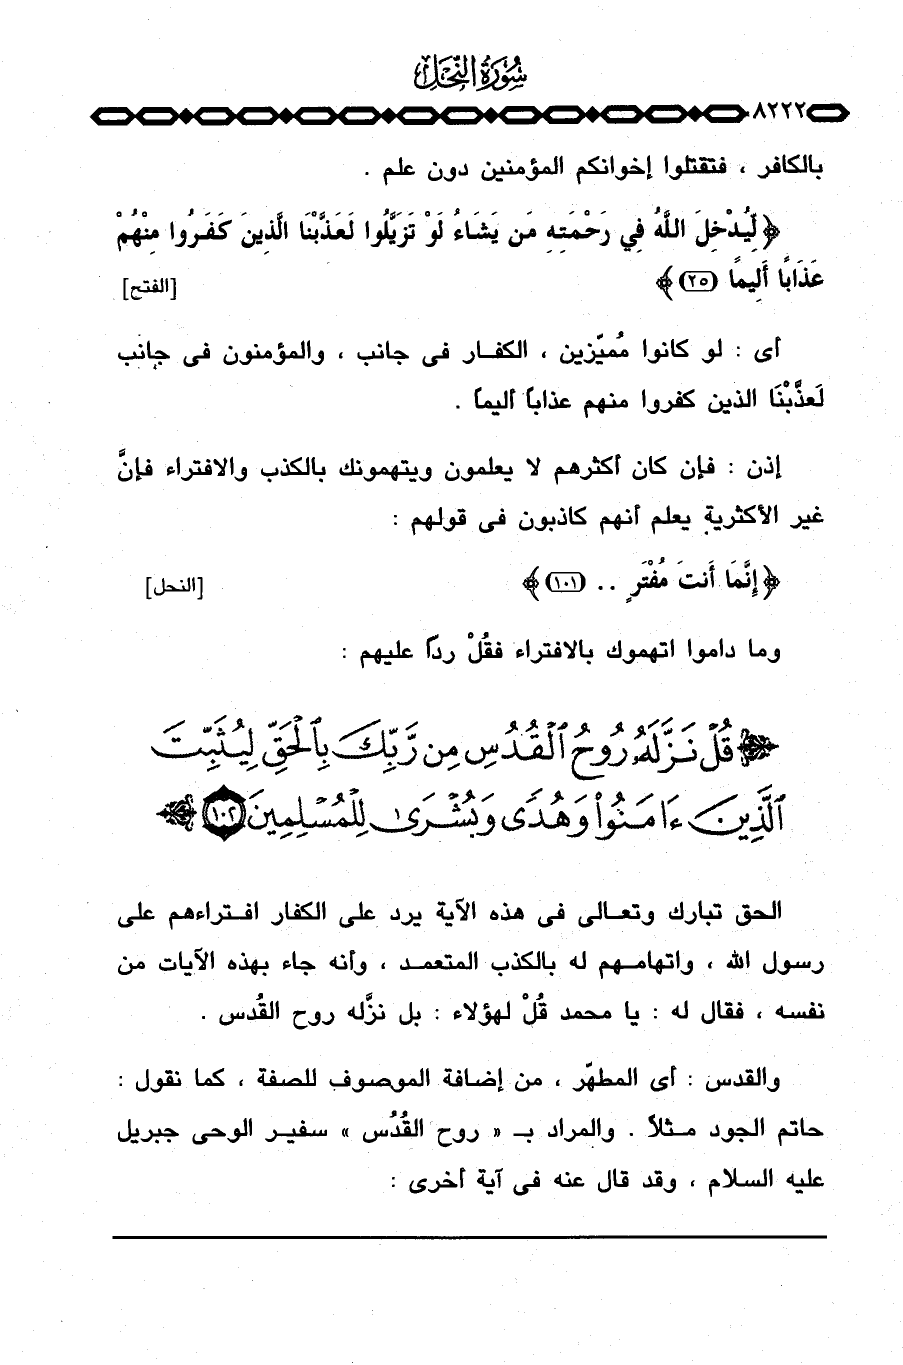 سُورَةُ النَّحْلِ
٨٢٢٢
بالكافر ، فتقتلوا إخوانكم المؤمنين دون علم .
﴿ لِّيُدْخِلَ اللَّهُ فِي رَحْمَتِهِ مَن يَشَاءُ لَوْ تَزَيَّلُوا لَعَذَّبْنَا الَّذِينَ كَفَرُوا مِنْهُمْ
عَذَابًا أَلِيمًا (٢٥) ﴾ [الفتح]
أى : لو كانوا مُميّزين ، الكفار فى جانب ، والمؤمنون فى جانب
لَعذَّبْنَا الذين كفروا منهم عذاباً أليماً .
إذن : فإن كان أكثرهم لا يعلمون ويتهمونك بالكذب والافتراء فإنَّ
غير الأكثرية يعلم أنهم كاذبون فى قولهم :
﴿ إِنَّمَا أَنتَ مُفْتَرٍ .. (١٠١) ﴾ [النحل]
وما داموا اتهموك بالافتراء فقُلْ رداً عليهم :
﴿ قُلْ نَزَّلَهُۥ رُوحُ ٱلْقُدُسِ مِن رَّبِّكَ بِٱلْحَقِّ لِيُثَبِّتَ
ٱلَّذِينَ ءَامَنُوا۟ وَهُدًى وَبُشْرَىٰ لِلْمُسْلِمِينَ ١٠٢ ﴾
الحق تبارك وتعالى فى هذه الآية يرد على الكفار افتراءهم على
رسول الله ، واتهامهم له بالكذب المتعمد ، وأنه جاء بهذه الآيات من
نفسه ، فقال له : يا محمد قُلْ لهؤلاء : بل نزَّله روح القُدس .
والقدس : أى المطهّر ، من إضافة الموصوف للصفة ، كما نقول :
حاتم الجود مثلاً . والمراد بـ « روح القُدُس » سفير الوحى جبريل
عليه السلام ، وقد قال عنه فى آية أخرى :